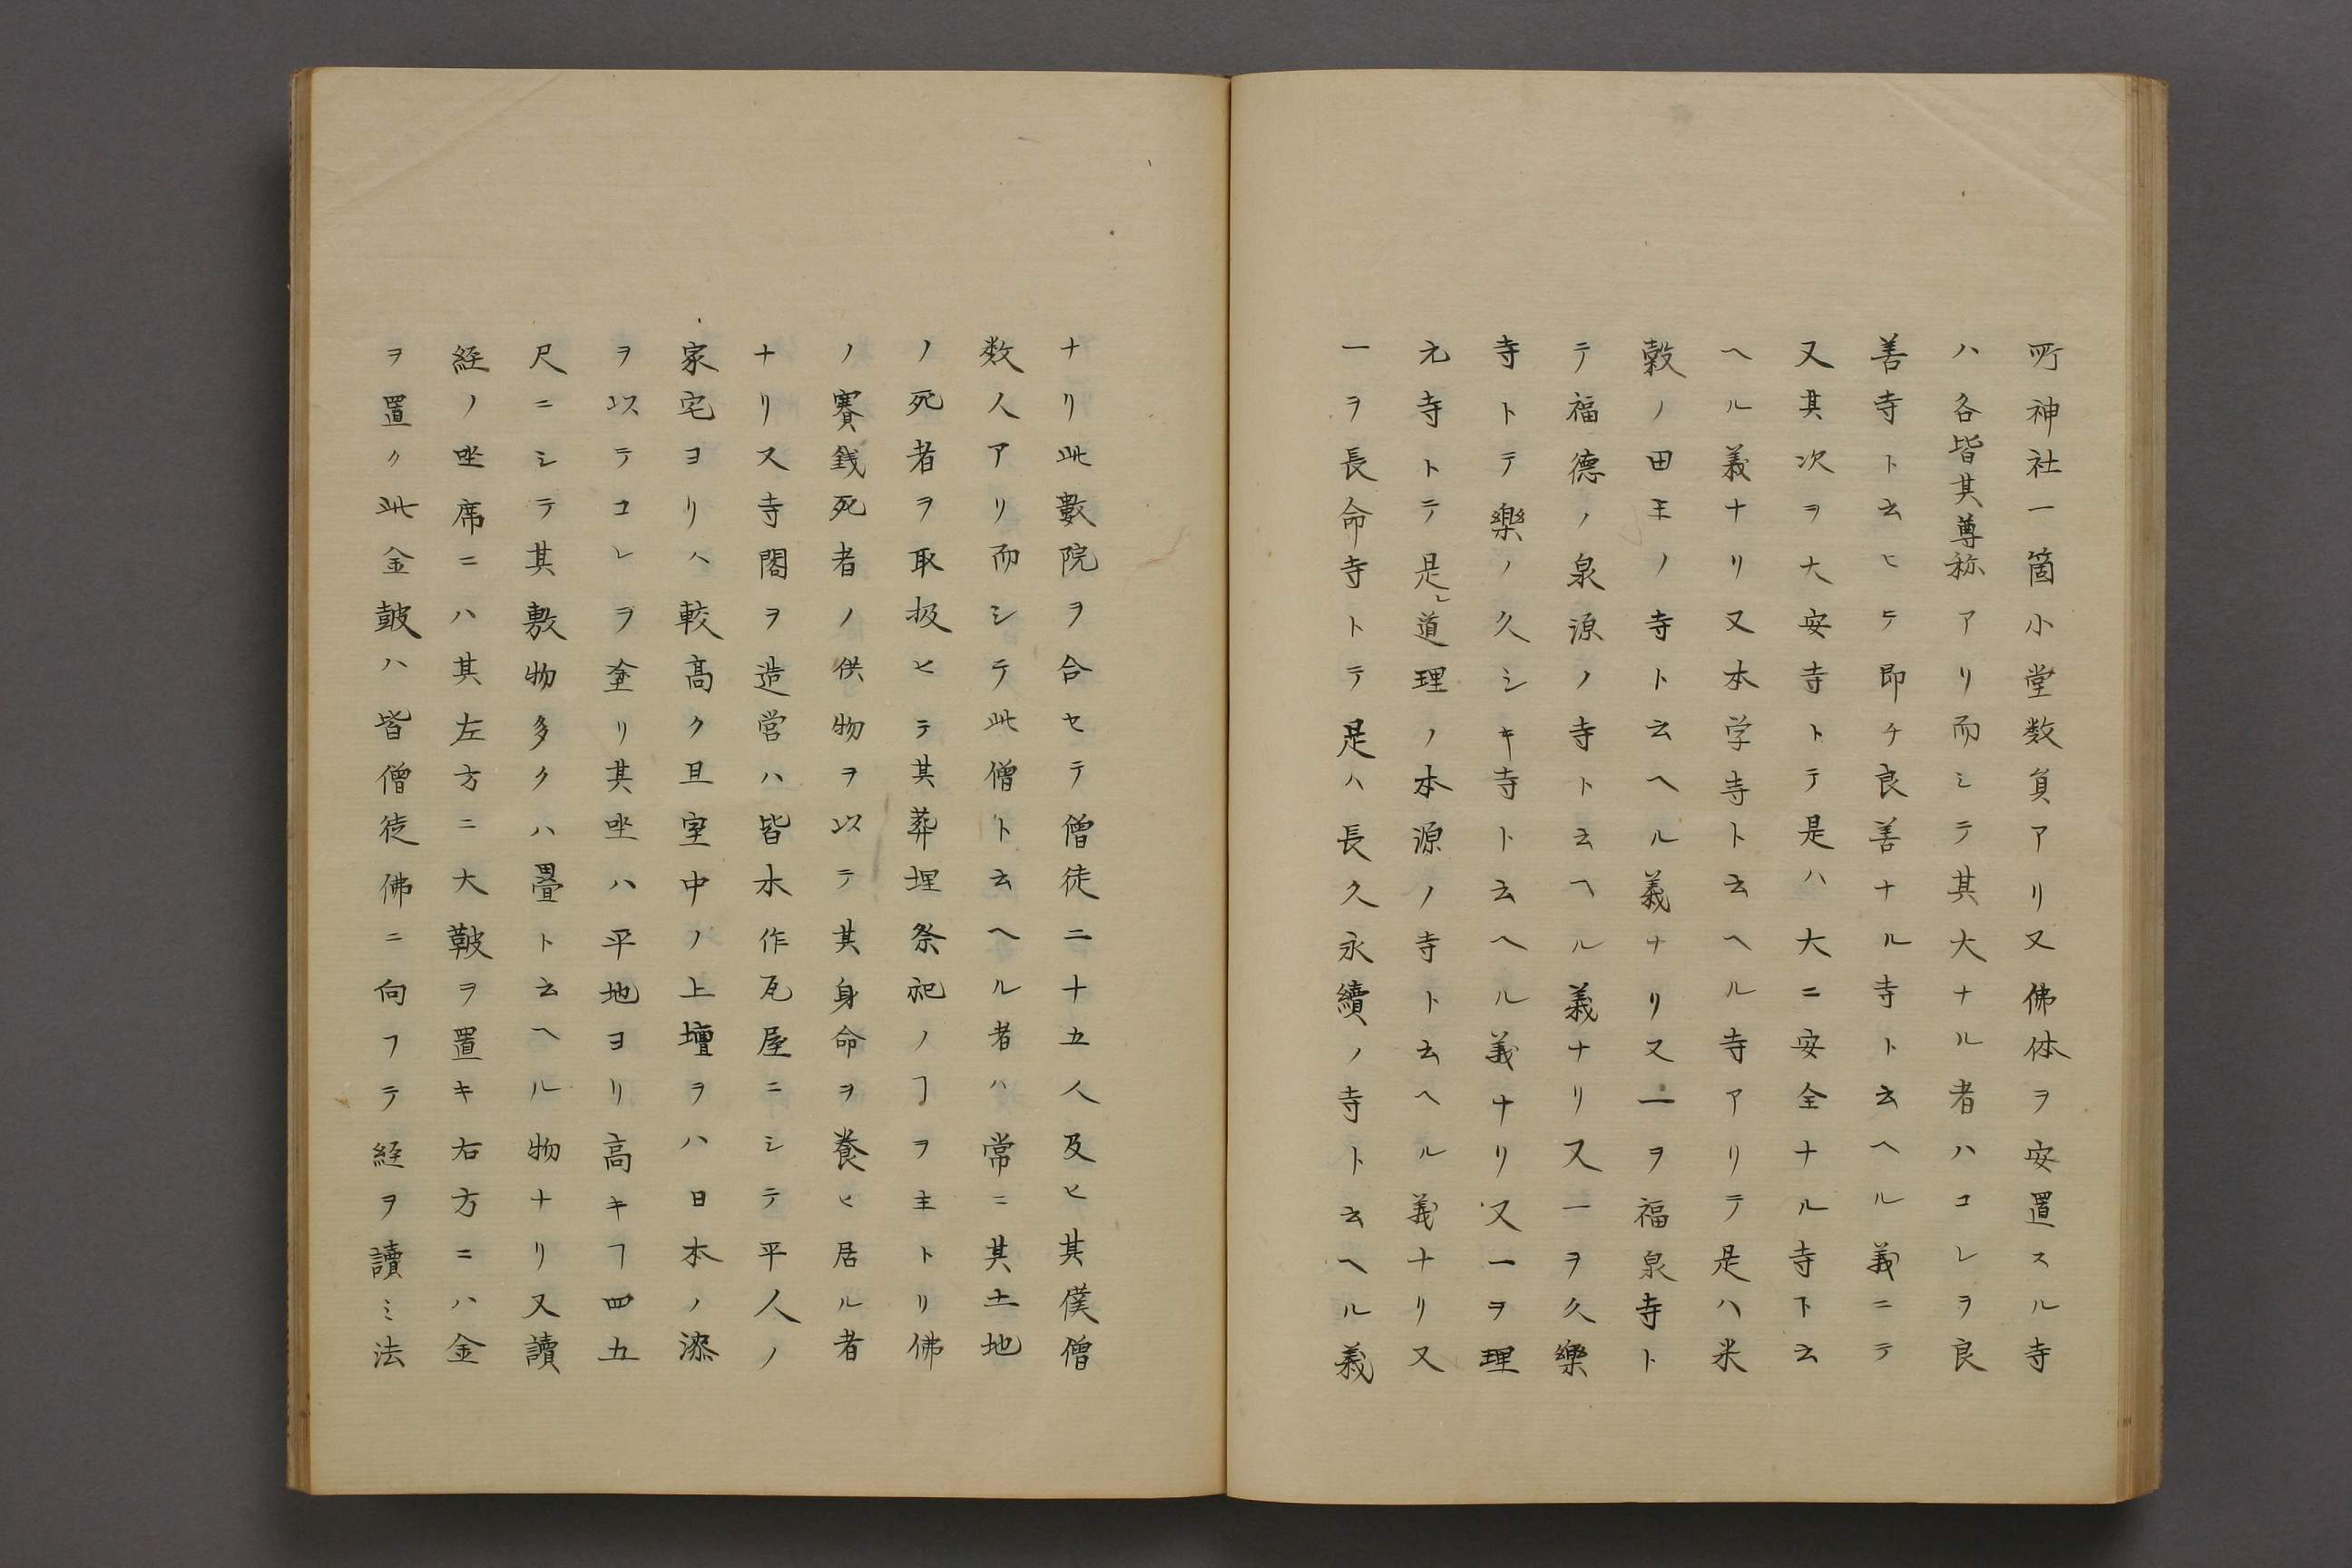 所神社一箇小堂数員アリ又佛体ヲ安置スル寺
ハ各皆其尊称アリ而シテ其大ナル者ハコレヲ良
善寺ト云ヒテ即チ良善ナル寺ト云ヘル義ニテ
又其次ヲ大安寺トテ是ハ大ニ安全ナル寺ト云
ヘル義ナリ又本学寺ト云ヘル寺アリテ是ハ米
穀ノ田王ノ寺ト云ヘル義ナリ又一ヲ福泉寺ト
テ福德ノ泉源ノ寺ト云ヘル義ナリ又一ヲ久樂
寺トテ樂ノ久シキ寺ト云ヘル義ナリ又一ヲ理
元寺トテ是レ道理ノ本源ノ寺ト云ヘル義ナリ又
一ヲ長命寺トテ是ハ長久永續ノ寺ト云ヘル義
ナリ此數院ヲ合セテ僧徒二十五人及ヒ其僕僧
数人アリ而シテ此僧ト云ヘル者ハ常ニ其土地
ノ死者ヲ取扱ヒテ其葬埋祭祀ノヿヲ主トリ佛
ノ賽銭死者ノ供物ヲ以テ其身命ヲ養ヒ居ル者
ナリ又寺閣ヲ造営ハ皆木作瓦屋ニシテ平人ノ
家宅ヨリハ較高ク且室中ノ上壇ヲハ日本ノ漆
ヲ以テコレヲ塗リ其坐ハ平地ヨリ高キヿ四五
尺ニシテ其敷物多クハ疊ト云ヘル物ナリ又讀
経ノ坐席ニハ其左方ニ大鞁ヲ置キ右方ニハ金
ヲ置ク此金皷ハ皆僧徒佛ニ向フテ経ヲ讀ミ法